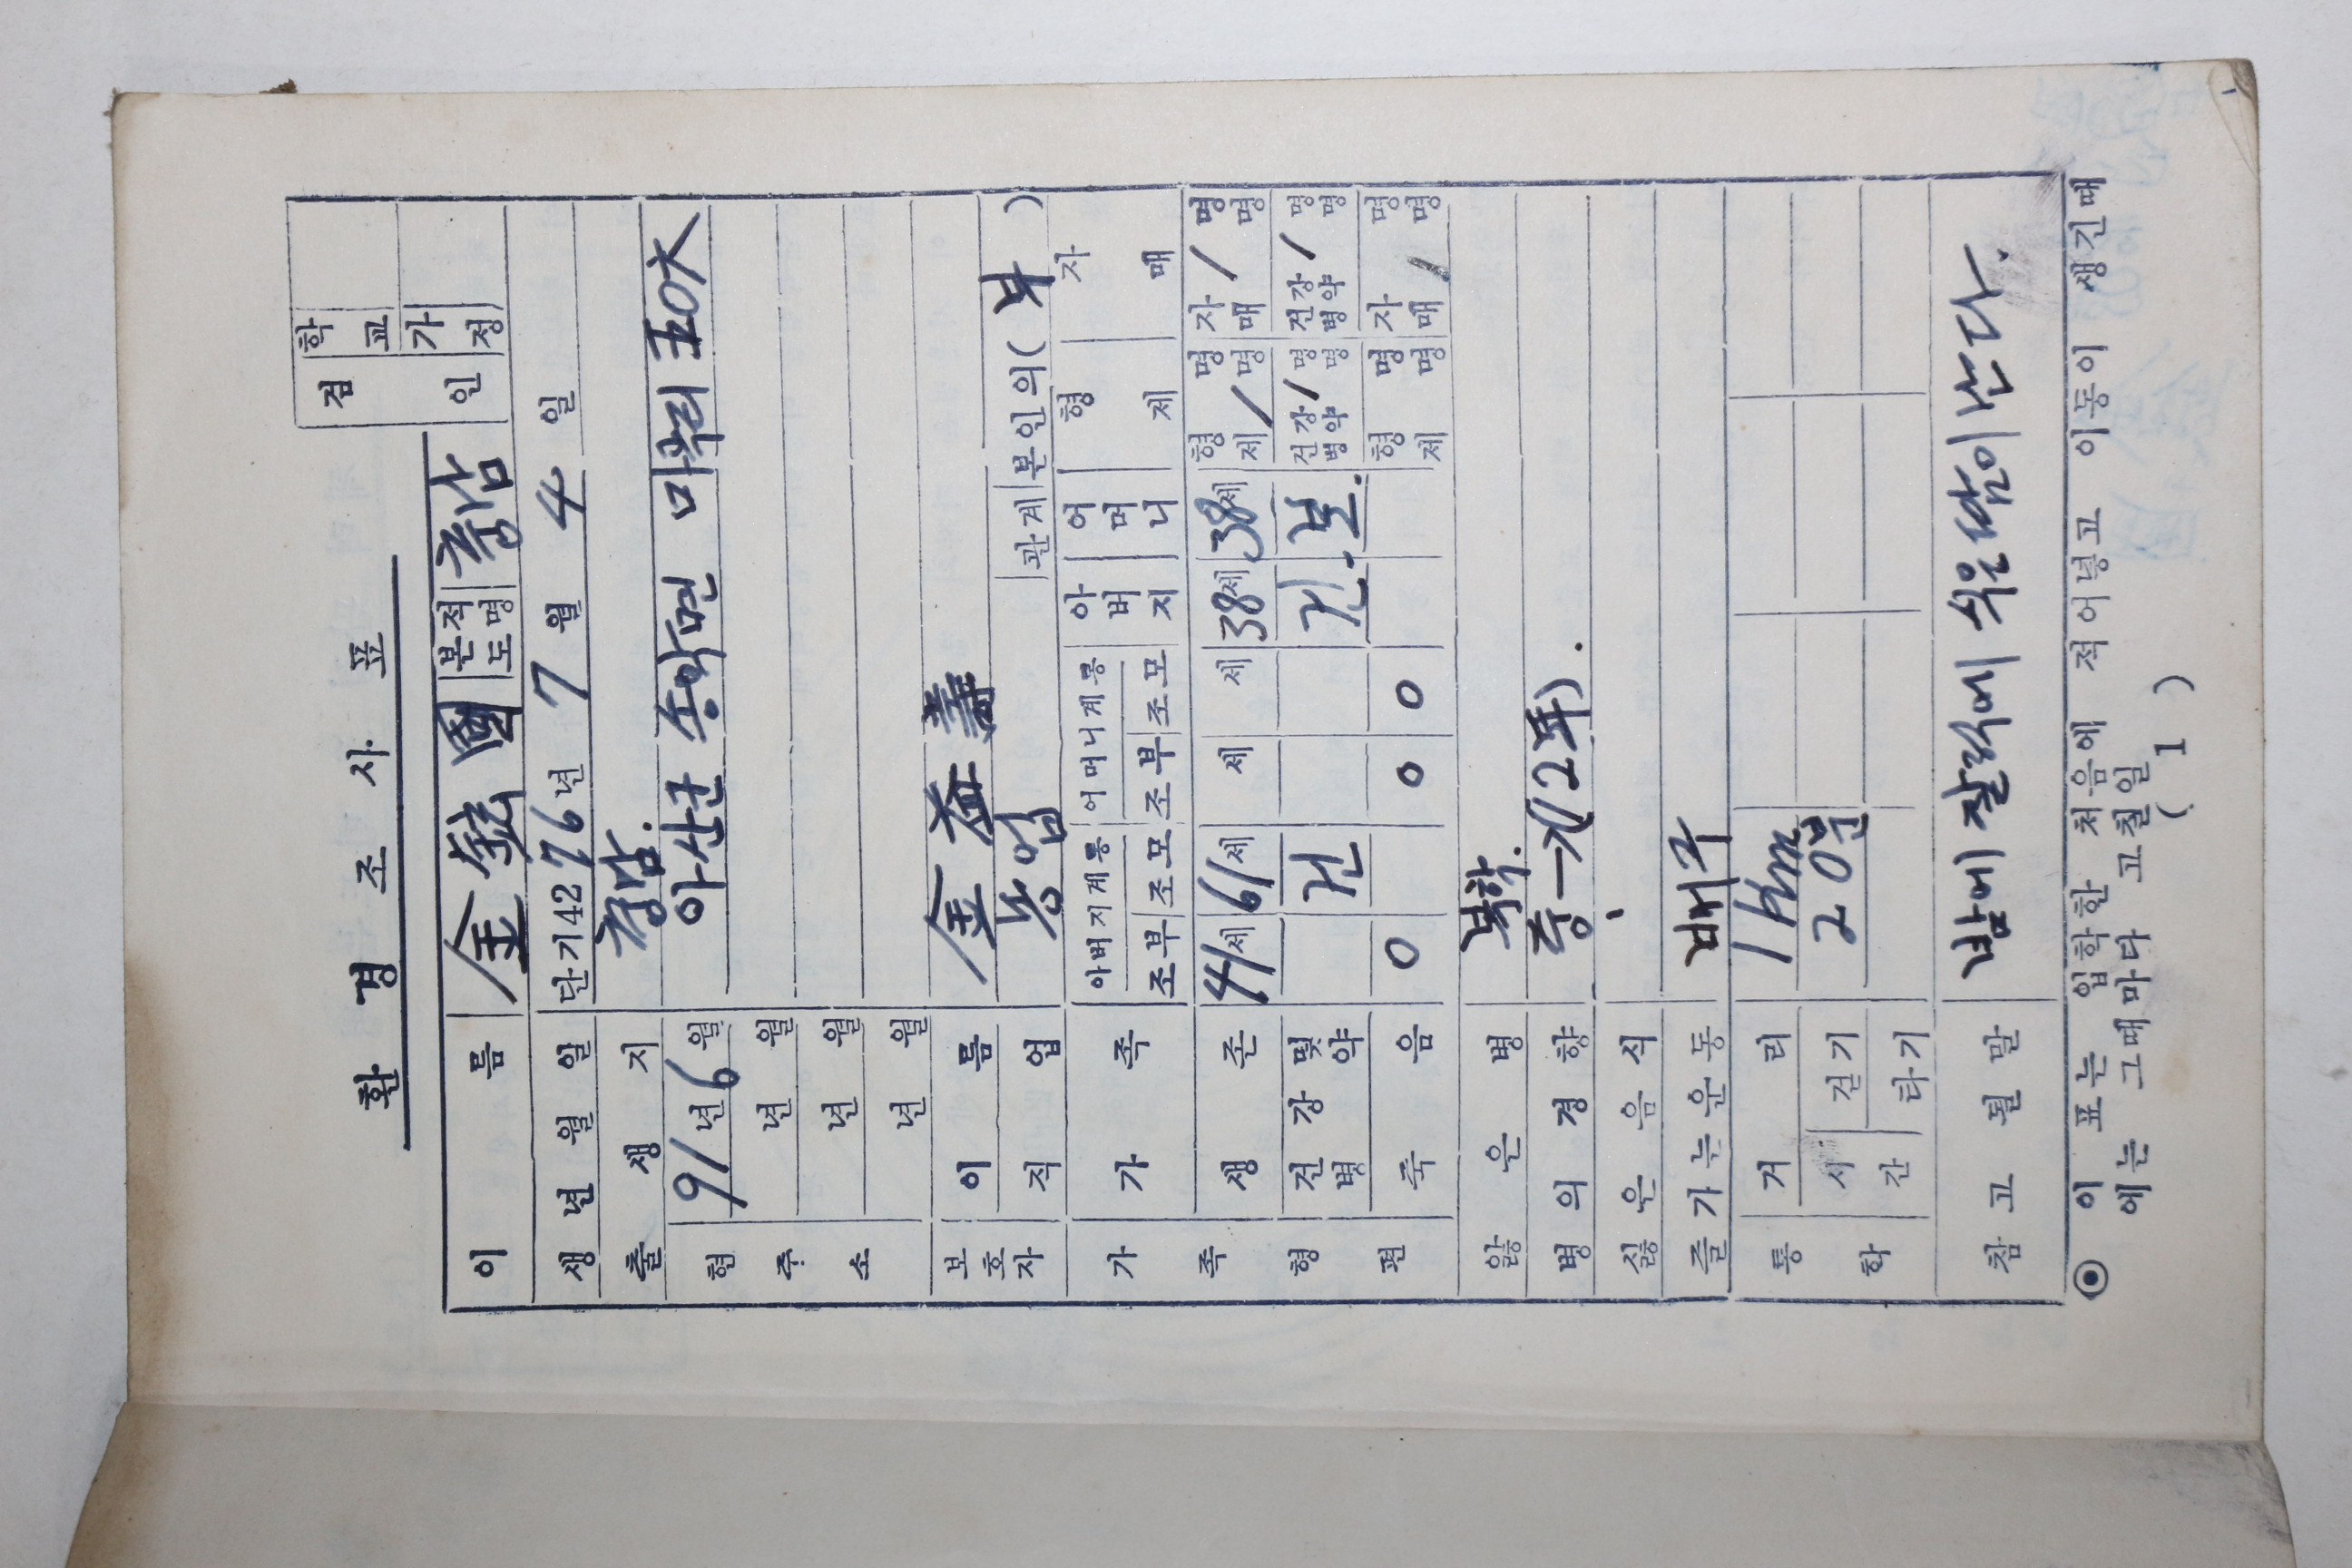 환경조사표
검인 학교
가정
이름 金鉉國 본적도명 충남
생년월일 단기4276년 7월 4일
출생지 충남.
현주소 91년6월 아산군 송악면 마곡리 五0六
년 월
년 월
년 월
보호자 이름 金益壽
직업 농업 관계 본인의(부)
가족형편 가족 아버지계통 조부 조모 어머니계통 조부 조모 아버지 어머니 형제 자매
생존 41세 61세 세 세 38세 38세 형 / 명 제 명 자 / 명 매 명
건강및병약 건 건. 보. 건강 / 명 병약 명 건강 / 명 병약 명
죽음 0 0 0 형 명 제 명 자 명 매 / 명
앓은병 복학.
병의경향 중一키(12年).
싫은음식
즐기는운동 배구
통학 거리 1km
시간 걷기 20분
타기
참고될말 밤에 잘적에 식은땀이 난다.
◉ 이 표는 입학한 처음에 적어넣고 이동이 생긴때
에는 그때마다 고칠일
( 1 )